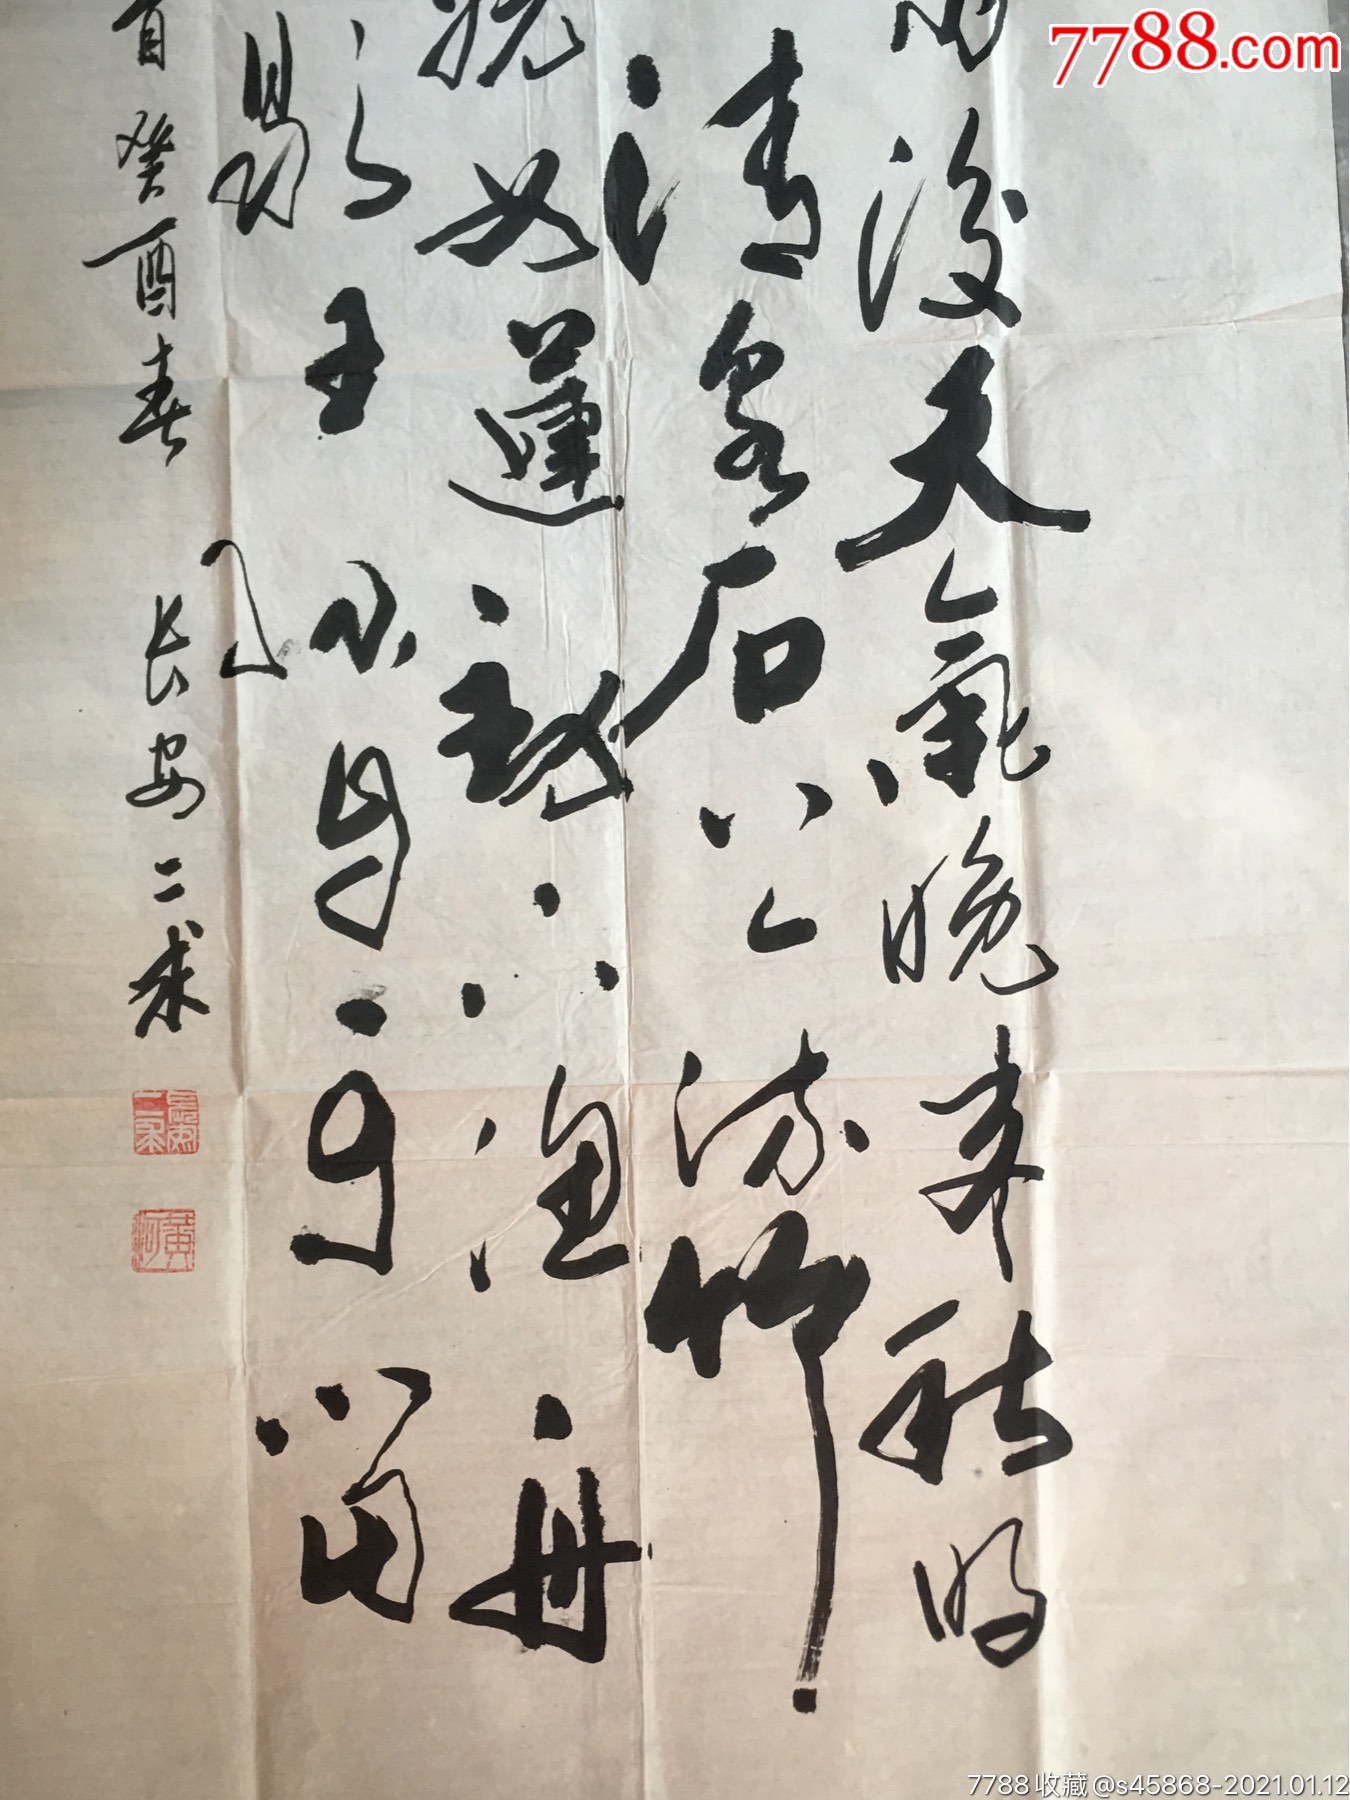 7788.com
雨後天氣晚來秋明
清泉石上流竹
浣女蓮動下漁舟
歇王孫自可留
易
首癸酉春
长安二求
7788收藏@s45868-2021.01.12